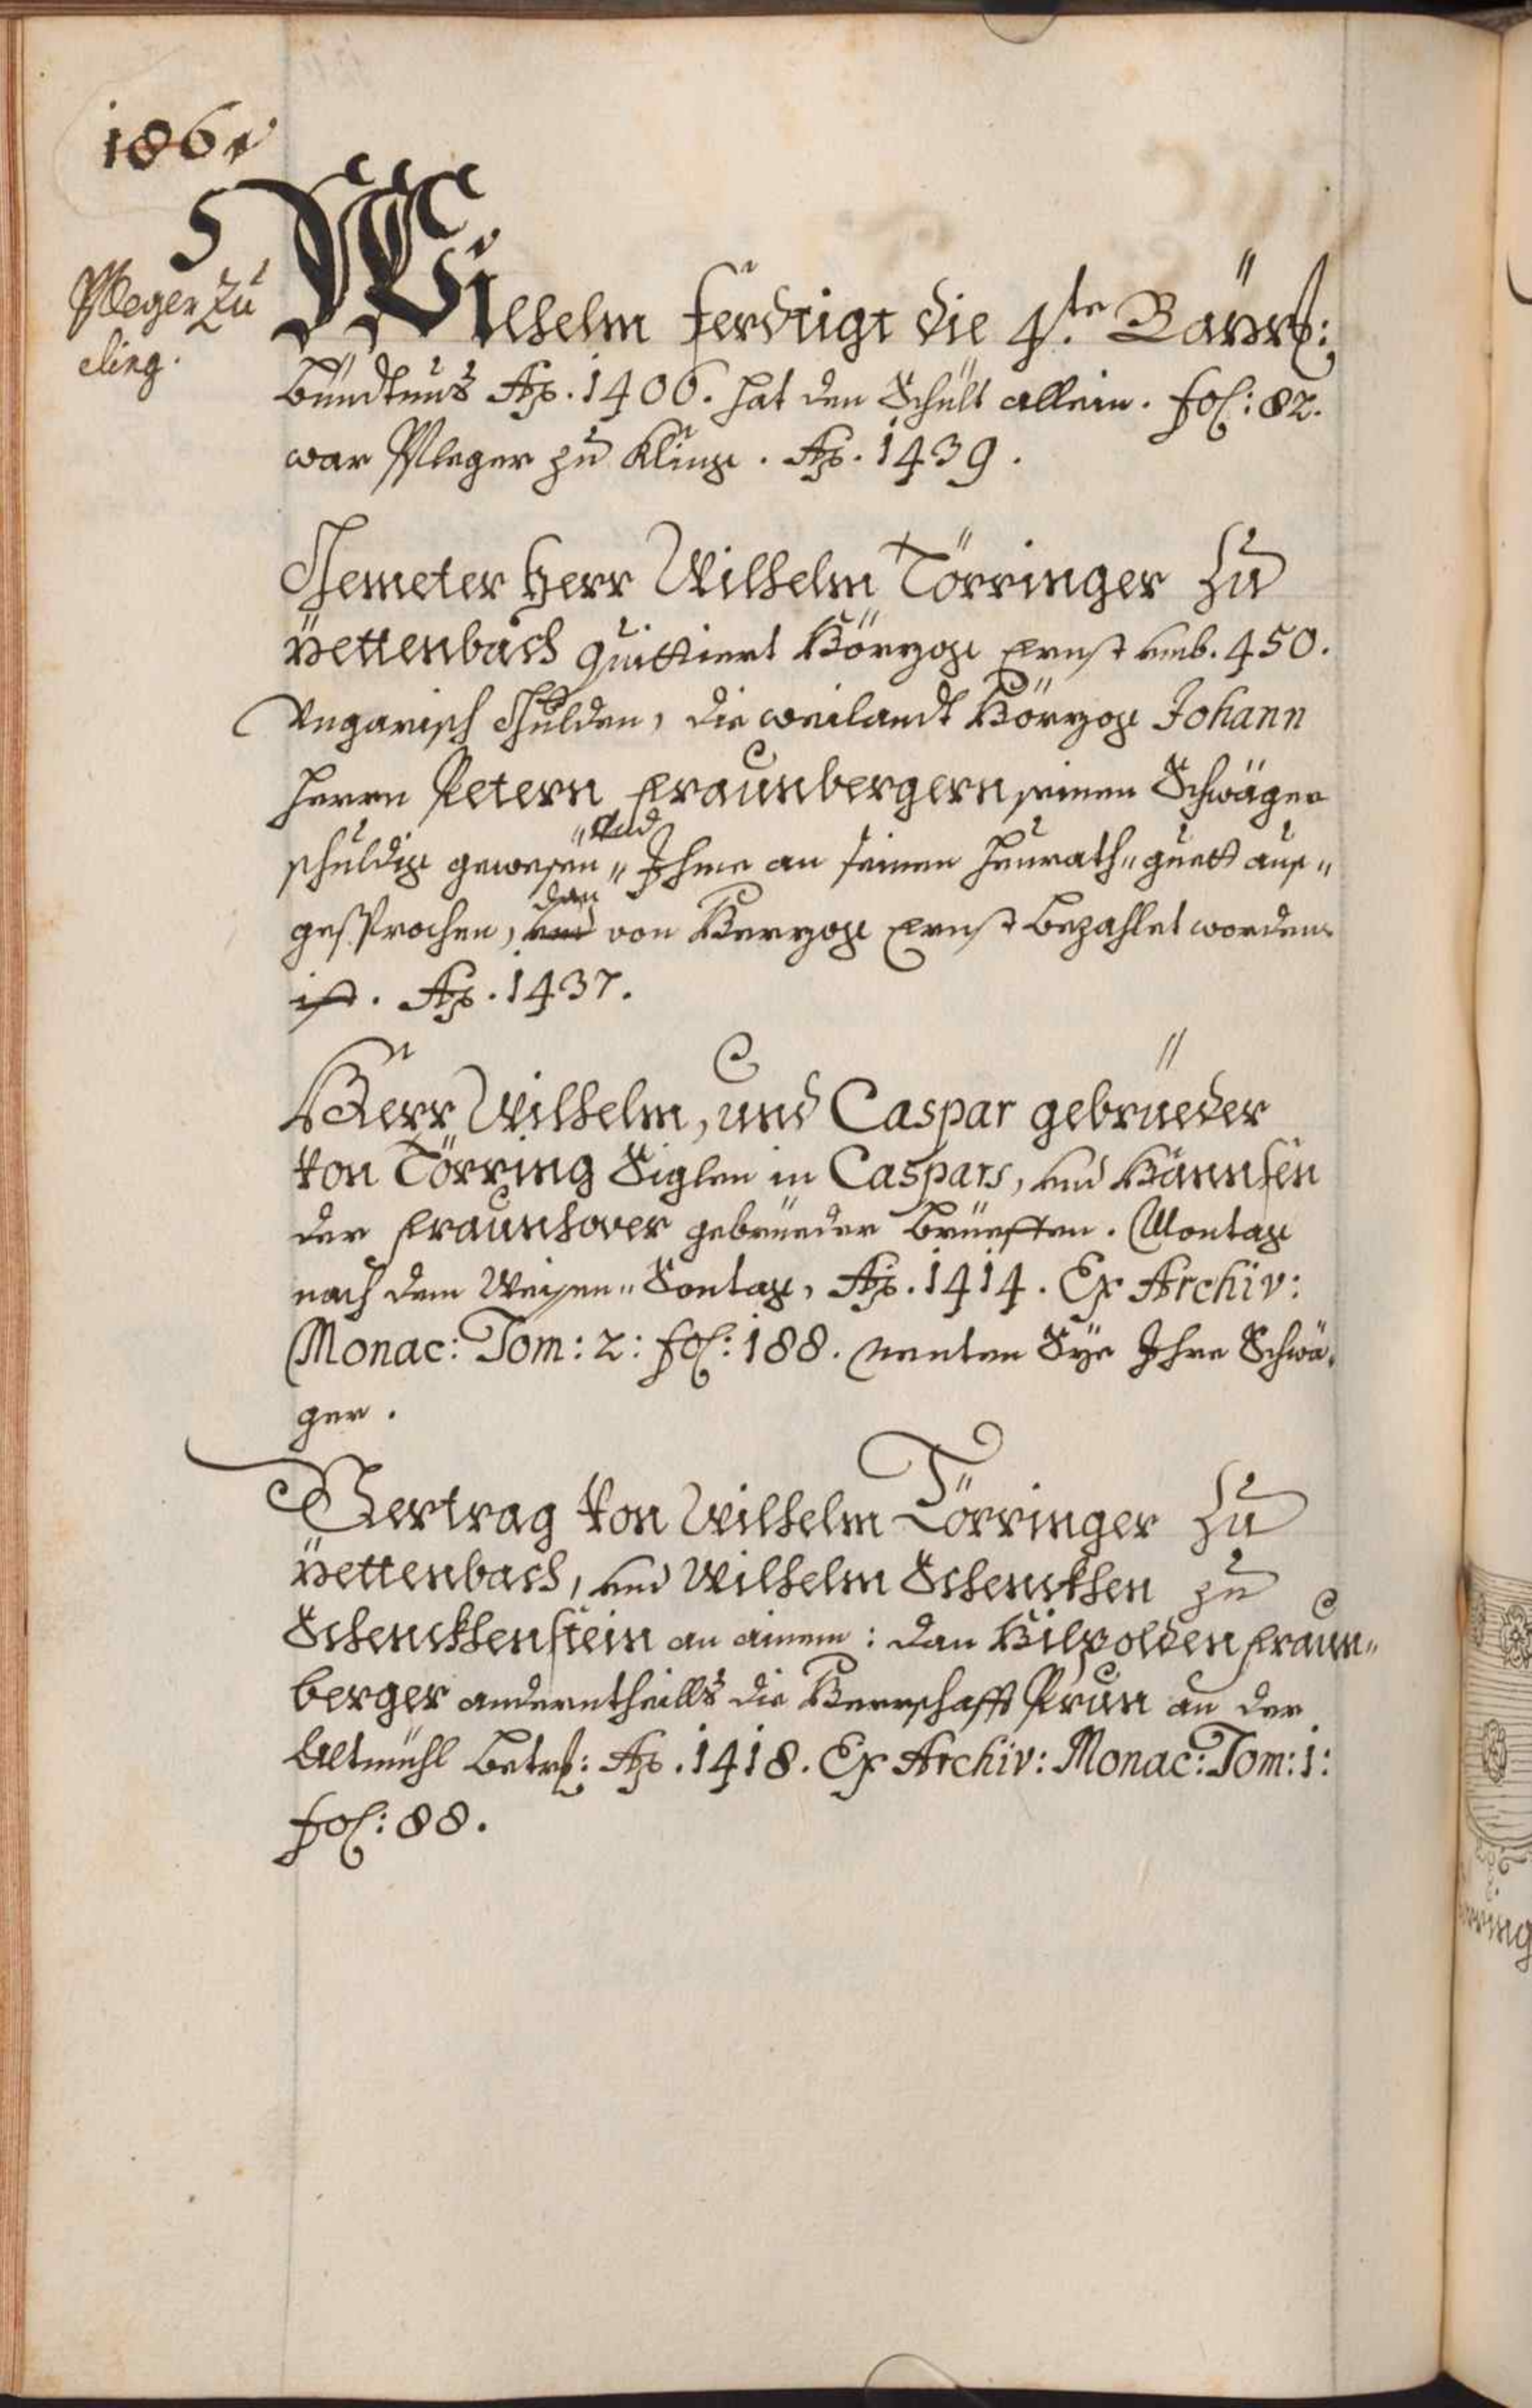 186
Pfleger zu
cling.
Wilhelm ferdtigt die 4.te Bäyrl:
bündtnus Ao. 1406. hat den Schilt allein. fol: 82.
war Pfleger zu Kling. Ao. 1439.
Gemelter Herr Wilhelm Törringer zu
Yettenbach quittiert Hörzog Ernst umb. 450.
Ungarisch Gulden, die weilandt Hörzog Johann
Herrn Petern Fraunbergern seinen Schwäger
schuldig gewesen" und Ihme an seinen Heurath"guett aus"
gesprochen, dan von Herzog Ernst bezahlet worden
ist. Ao. 1437.
Herr Wilhelm, und Caspar gebrüeder
von Törring Siglen in Caspars, und Hannsen
der Fraunhover gebrüeder brüefften. Montag
nach dem Weisen" Sontag, Ao. 1414. Ex Archiv:
Monac: Tom: 2: fol: 188. nenten Sye Ihre Schwä"
ger.
Vertrag von Wilhelm Törringer zu
Yettenbach, und Wilhelm Schenckhen zu
Schenckhenstein an ainem: dan Hilpolden Fraun"
berger anderntheills die Herrschafft Prun an der
Altmühl betrf: Ao. 1418. Ex Archiv: Monac: Tom: 1:
fol: 88.